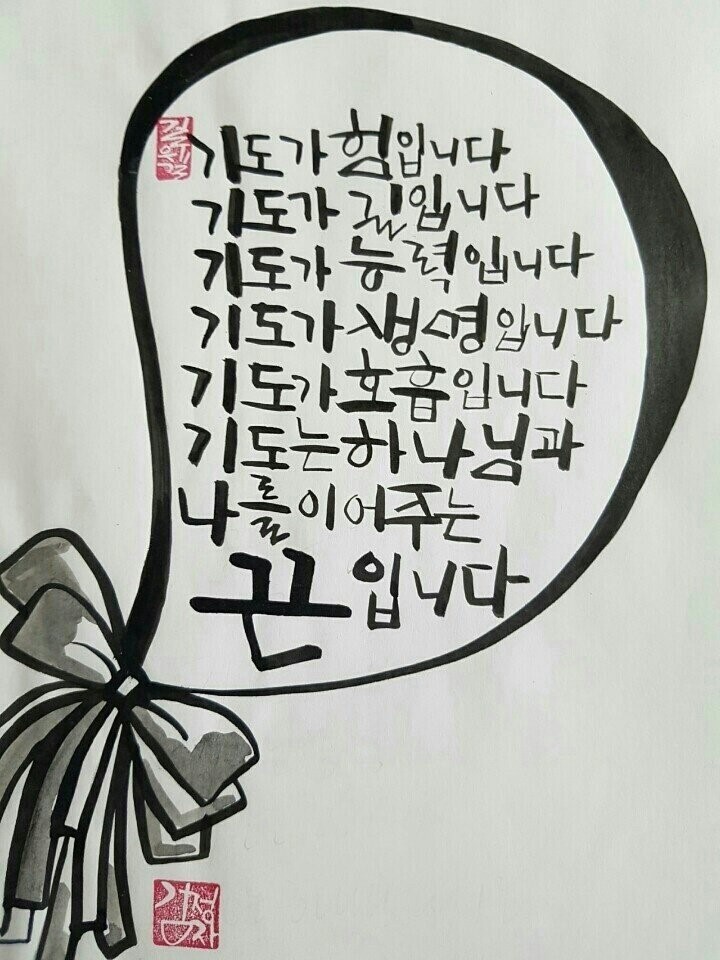 기도가 힘입니다
기도가 길입니다
기도가 능력입니다
기도가 생명입니다
기도가 호흡입니다
기도는 하나님과
나를 이어주는
끈입니다